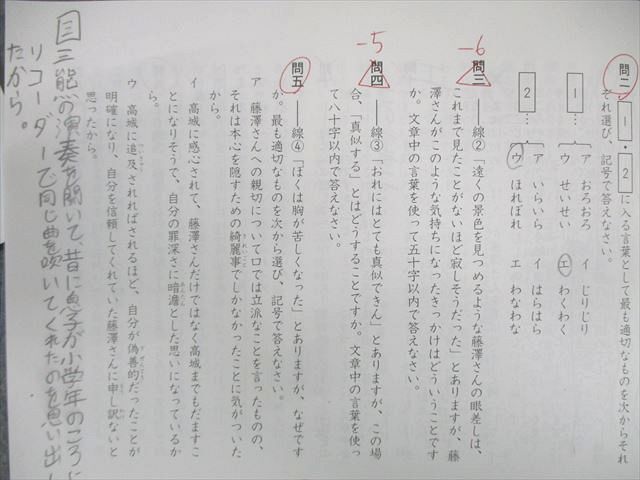 問二 1・2に入る言葉として最も適切なものを次からそれ
ぞれ選び、記号で答えなさい。
1… ア おろおろ イ じりじり
ウ せいせい エ わくわく
2… ア いらいら イ はらはら
ウ ほれぼれ エ わなわな
-6
問三 ――線②「遠くの景色を見つめるような藤澤さんの眼差しは、
これまで見たことがないほど寂しそうだった」とありますが、藤
澤さんがこのような気持ちになったきっかけはどういうことです
か。文章中の言葉を使って五十字以内で答えなさい。
-5
問四 ――線③「おれにはとても真似できん」とありますが、この場
合、「真似する」とはどうすることですか。文章中の言葉を使っ
て八十字以内で答えなさい。
問五 ――線④「ぼくは胸が苦しくなった」とありますが、なぜです
か。最も適切なものを次から選び、記号で答えなさい。
ア 藤澤さんへの親切について口では立派なことを言ったものの、
それは本心を隠すための綺麗事でしかなかったことに気がついた
から。
イ 高城に感心されて、藤澤さんだけではなく高城までもだますこ
とになりそうで、自分の罪深さに暗澹とした思いになっているか
ら。
ウ 高城に追及されればされるほど、自分が偽善的だったことが
明確になり、自分を信頼してくれていた藤澤さんに申し訳ないと
思ったから。
三 三熊の演奏を聞いて、昔に息子が小学年のころに
リコーダーで同じ曲を吹いてくれたのを思い出し
たから。